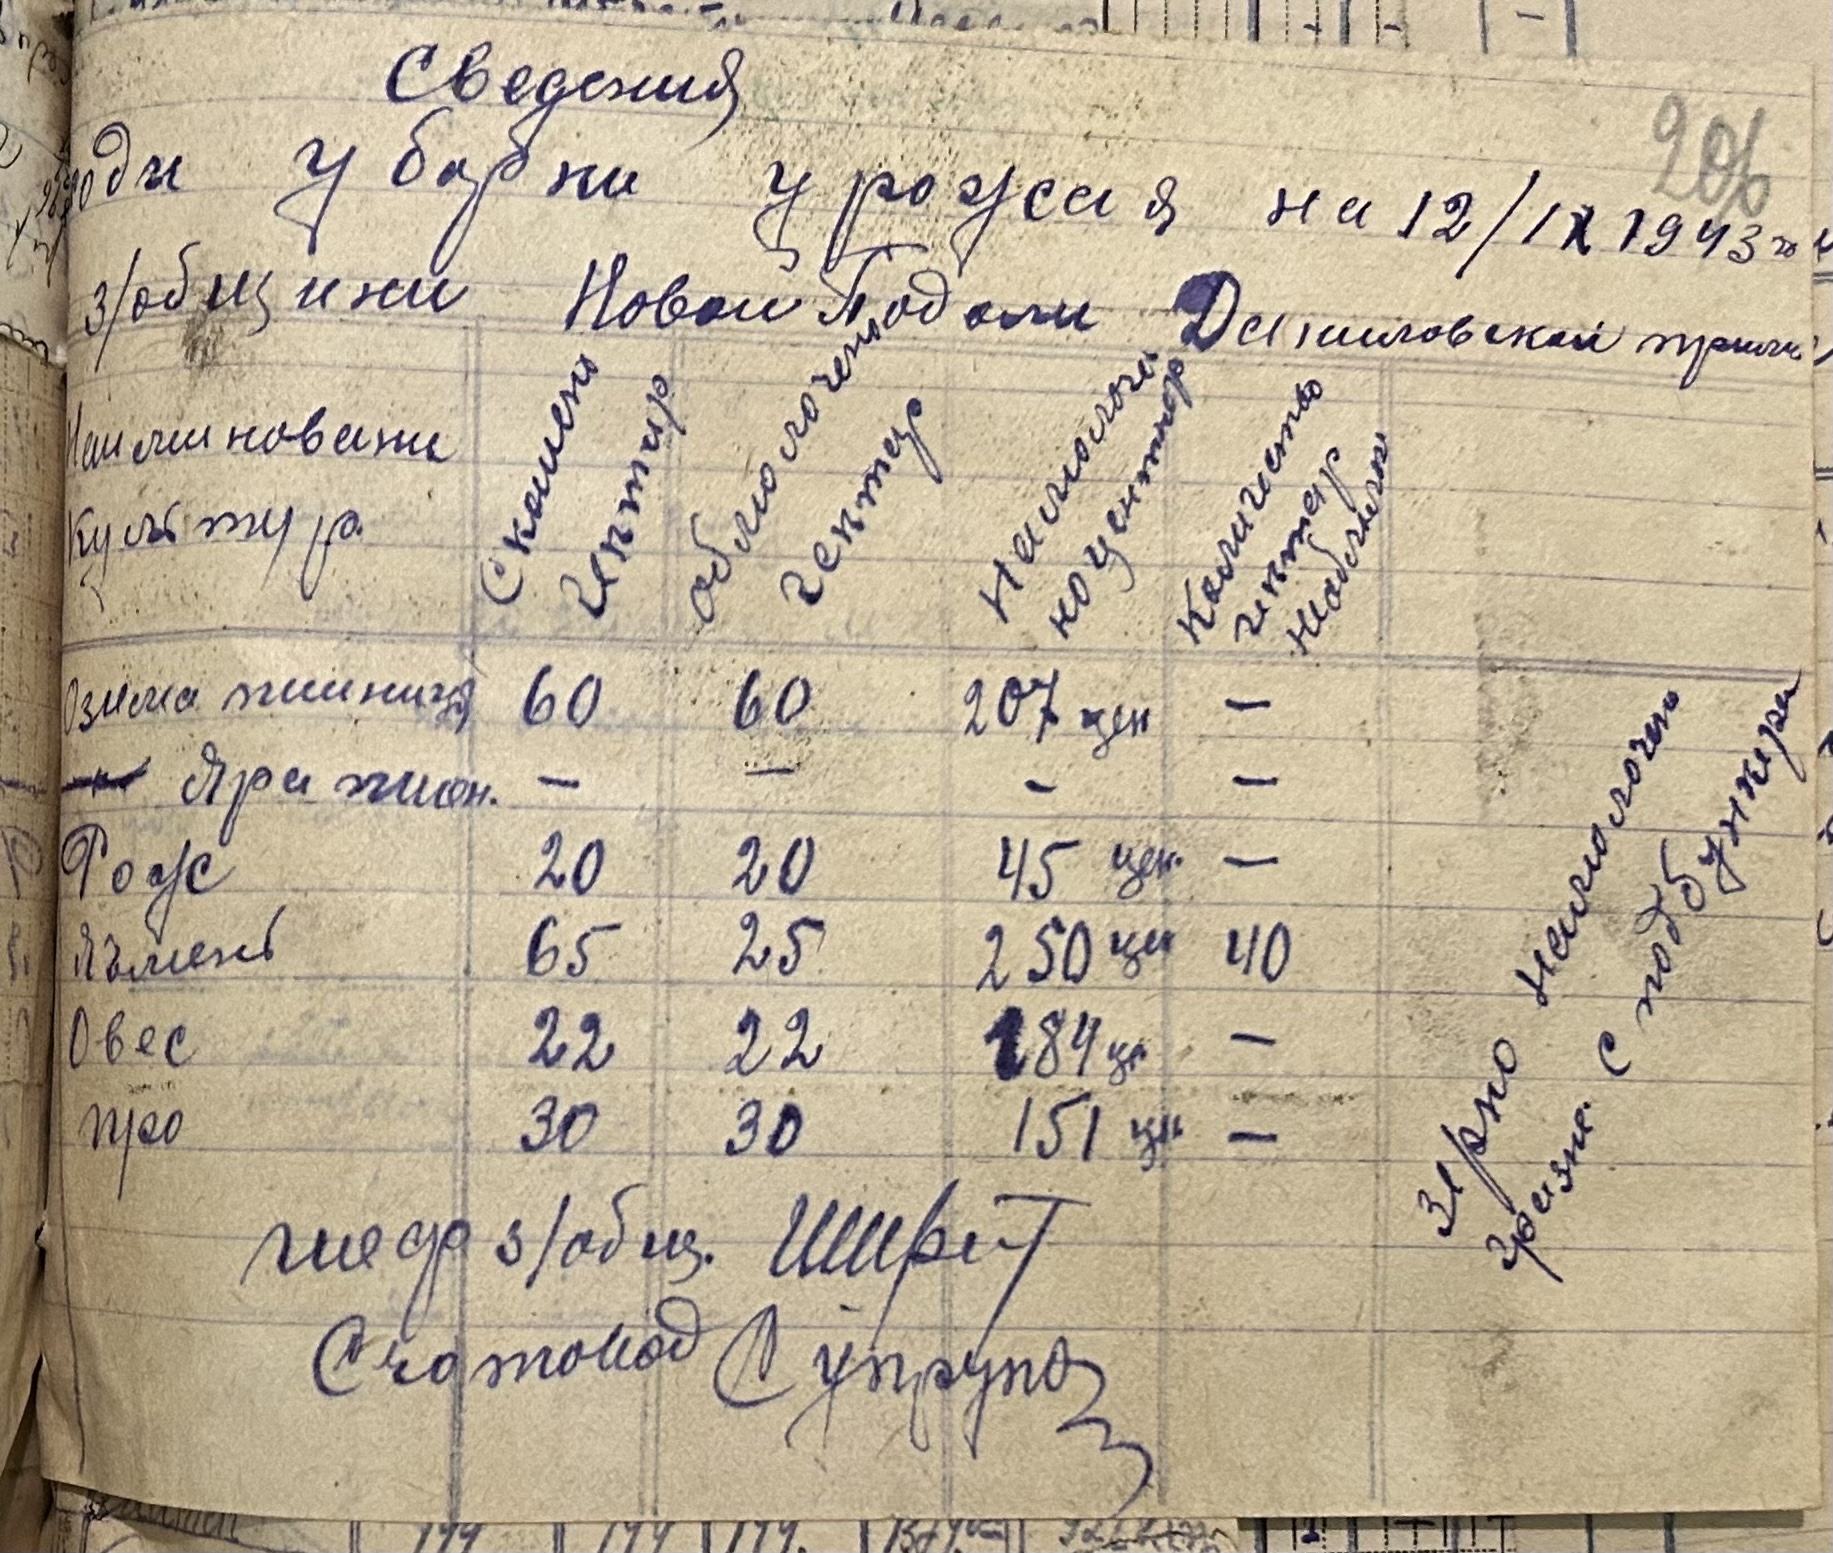 Сведения
206
ходи уборки урожая на 12/IX 1943 г.
з/общини Новой Подоли Даниловской
Наименовани
Культур
Скошено
гектар
обмолочено
гектар
Намолоче
но центнер
Количество
гектар
Необмоло
Озима пшениця 60 60 207 цен —
Яра пшен. — — — —
Рожь 20 20 45 цен. —
Ячмень 65 25 250 цен 40
Овес 22 22 184 це —
про 30 30 151 це —
Зерно намолочено
грязне с под бункера
з/общ. Шврит
Счотовод Супрун